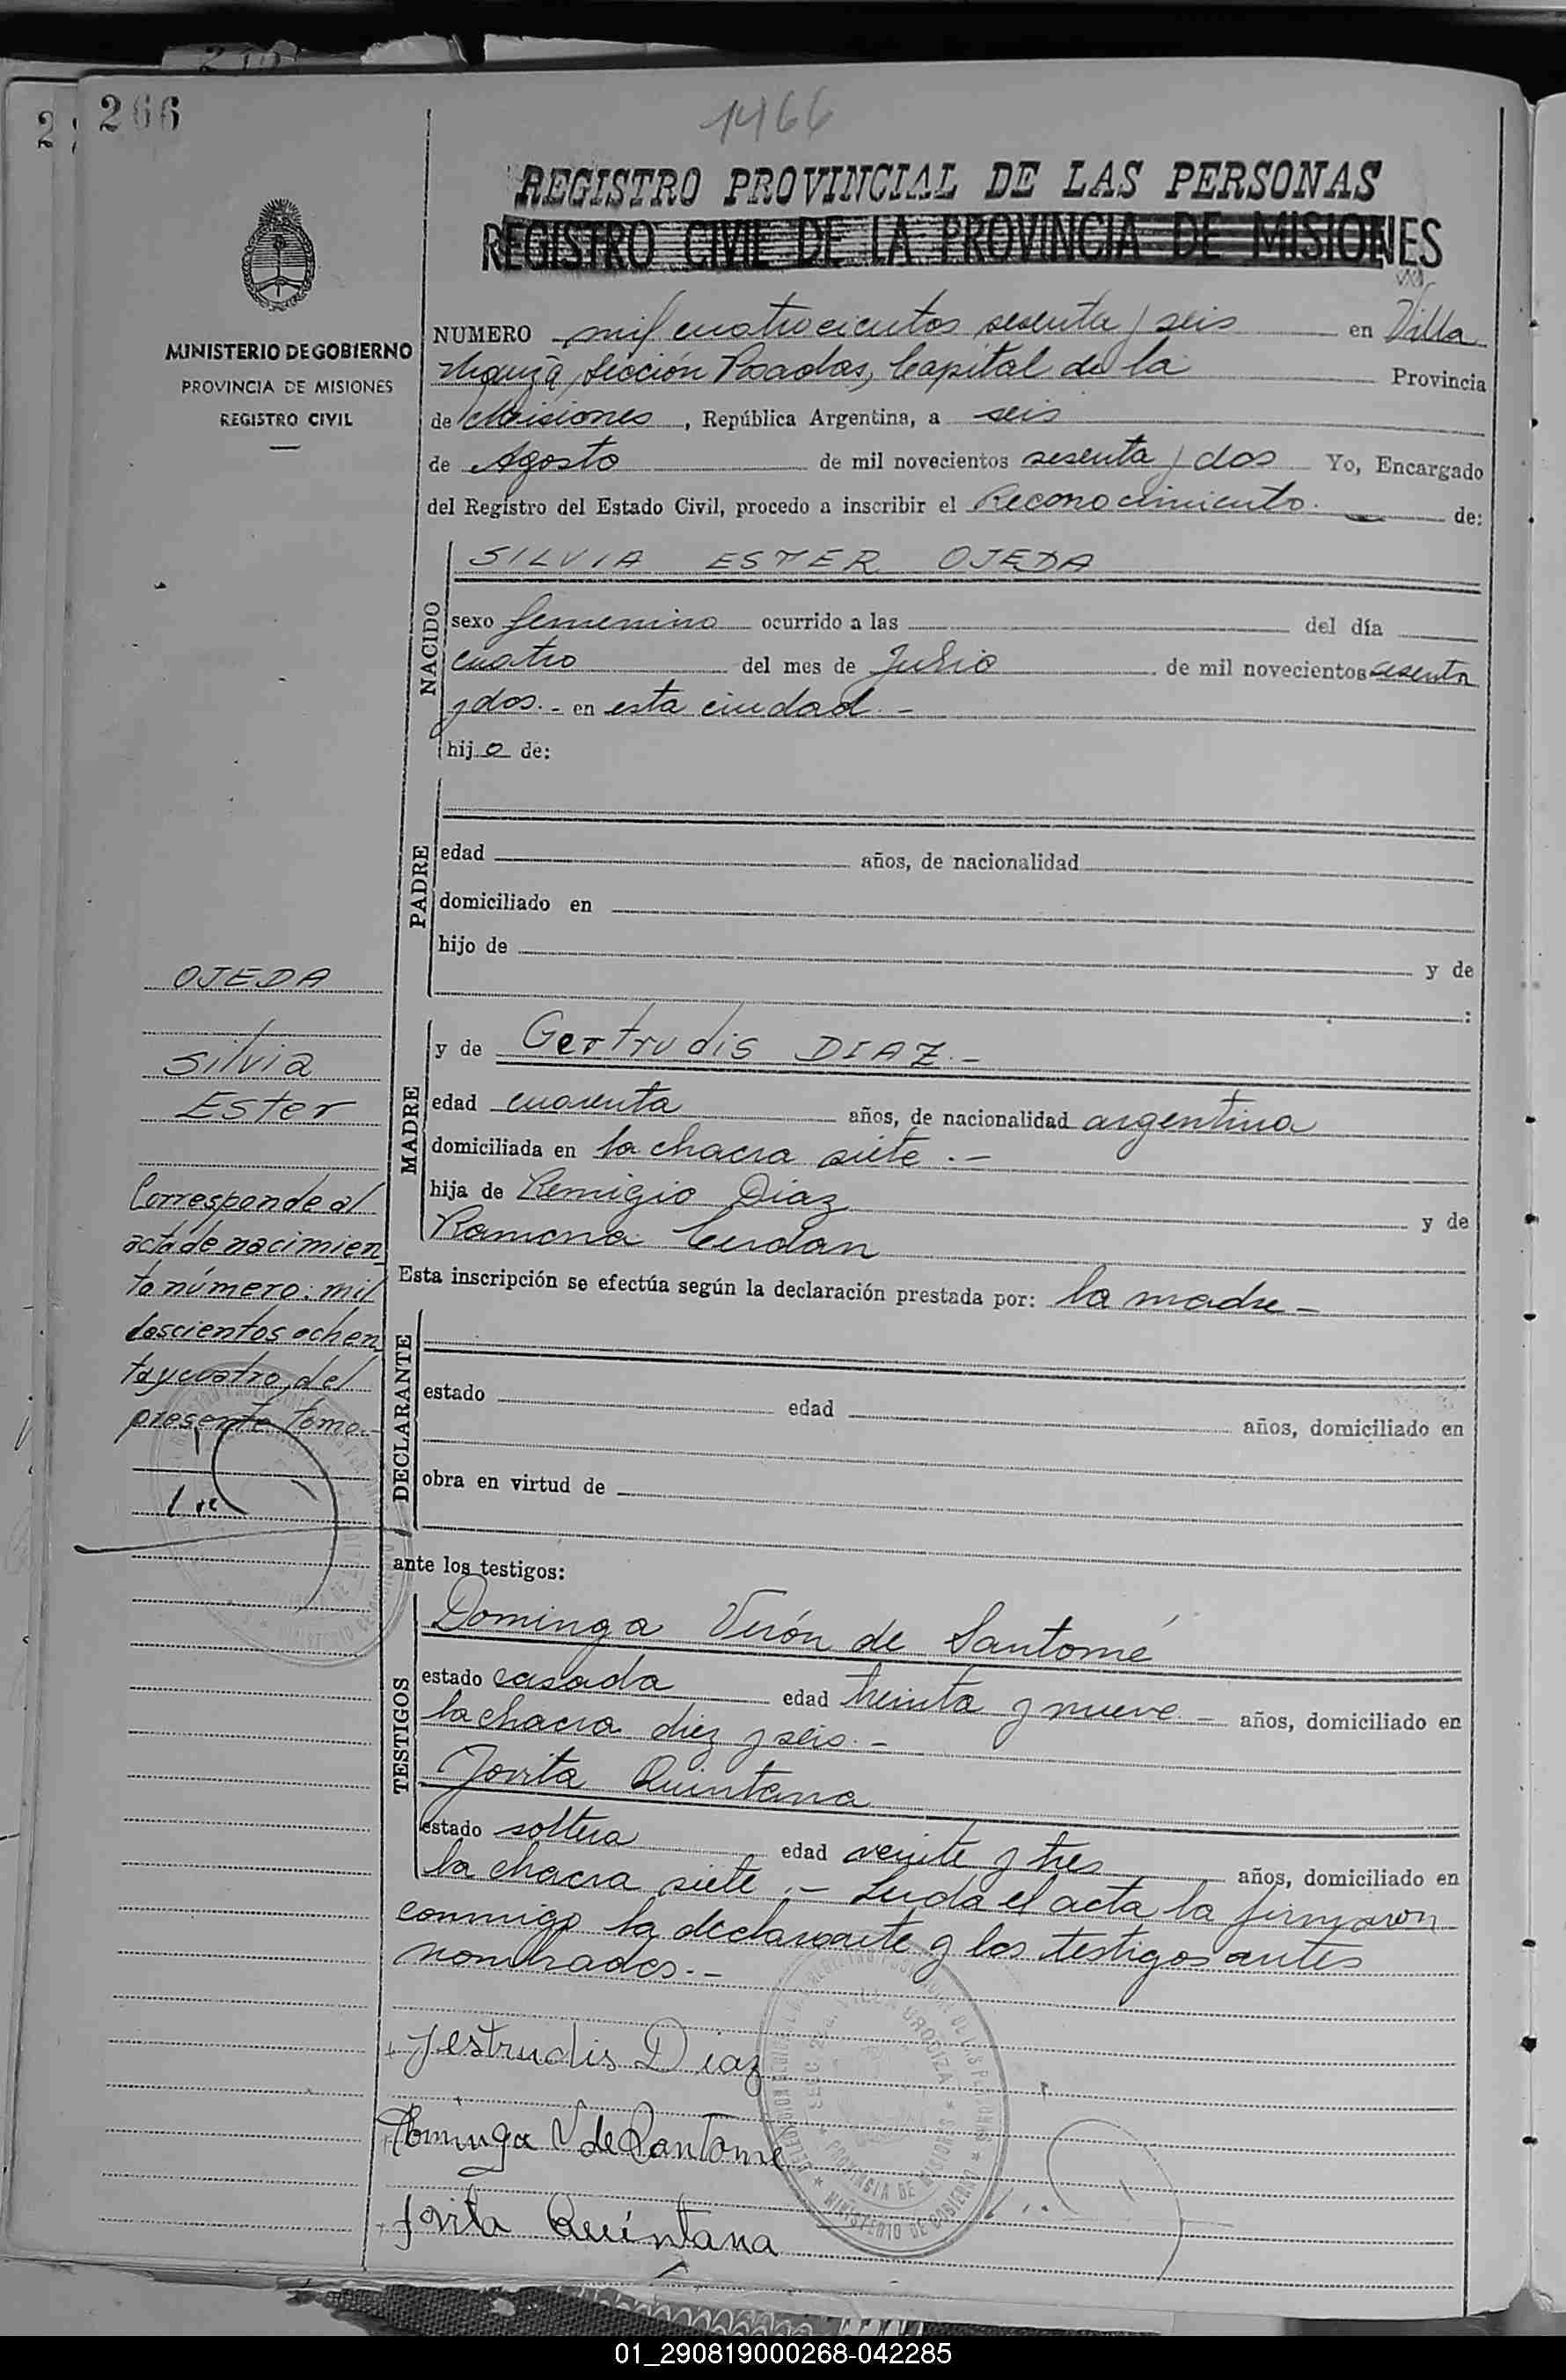 266
1466
REGISTRO PROVINCIAL DE LAS PERSONAS
REGISTRO CIVIL DE LA PROVINCIA DE MISIONES
MINISTERIO DE GOBIERNO
PROVINCIA DE MISIONES
REGISTRO CIVIL
NUMERO mil cuatrocientos sesenta y seis en Villa
Sección Posadas, Capital de la Provincia
de Misiones, República Argentina, a seis
de Agosto de mil novecientos sesenta y dos Yo, Encargado
del Registro del Estado Civil, procedo a inscribir el Reconocimiento. de:
NACIDO
SILVIA ESTER OJEDA
sexo femenino ocurrido a las del día
cuatro del mes de Julio de mil novecientos sesenta
y dos.- en esta ciudad.-
hijo de:
PADRE
edad años, de nacionalidad
domiciliado en
hijo de y de
:
OJEDA
Silvia
Ester
Corresponde al
acta de nacimien
to número: mil
doscientos ochen
ta y cuatro, del
presente tomo.-
MADRE
y de Gertrudis DIAZ.-
edad cuarenta años, de nacionalidad argentina
domiciliada en la chacra siete.-
hija de Remigio Diaz y de
Ramona Cerdan
Esta inscripción se efectúa según la declaración prestada por: la madre-
DECLARANTE
estado edad años, domiciliado en
obra en virtud de
ante los testigos:
TESTIGOS
Dominga Verón de Santomé
estado casada edad treinta y nueve.- años, domiciliado en
la chacra diez y seis.-
Jovita Quintana
estado soltera edad veinte y tres años, domiciliado en
la chacra siete.- Leida el acta la firmaron
conmigo la declarante y los testigos antes
nombrados.-
Jestrudis Diaz
Dominga V de Santome
Jovita Quintana
01_290819000268-042285